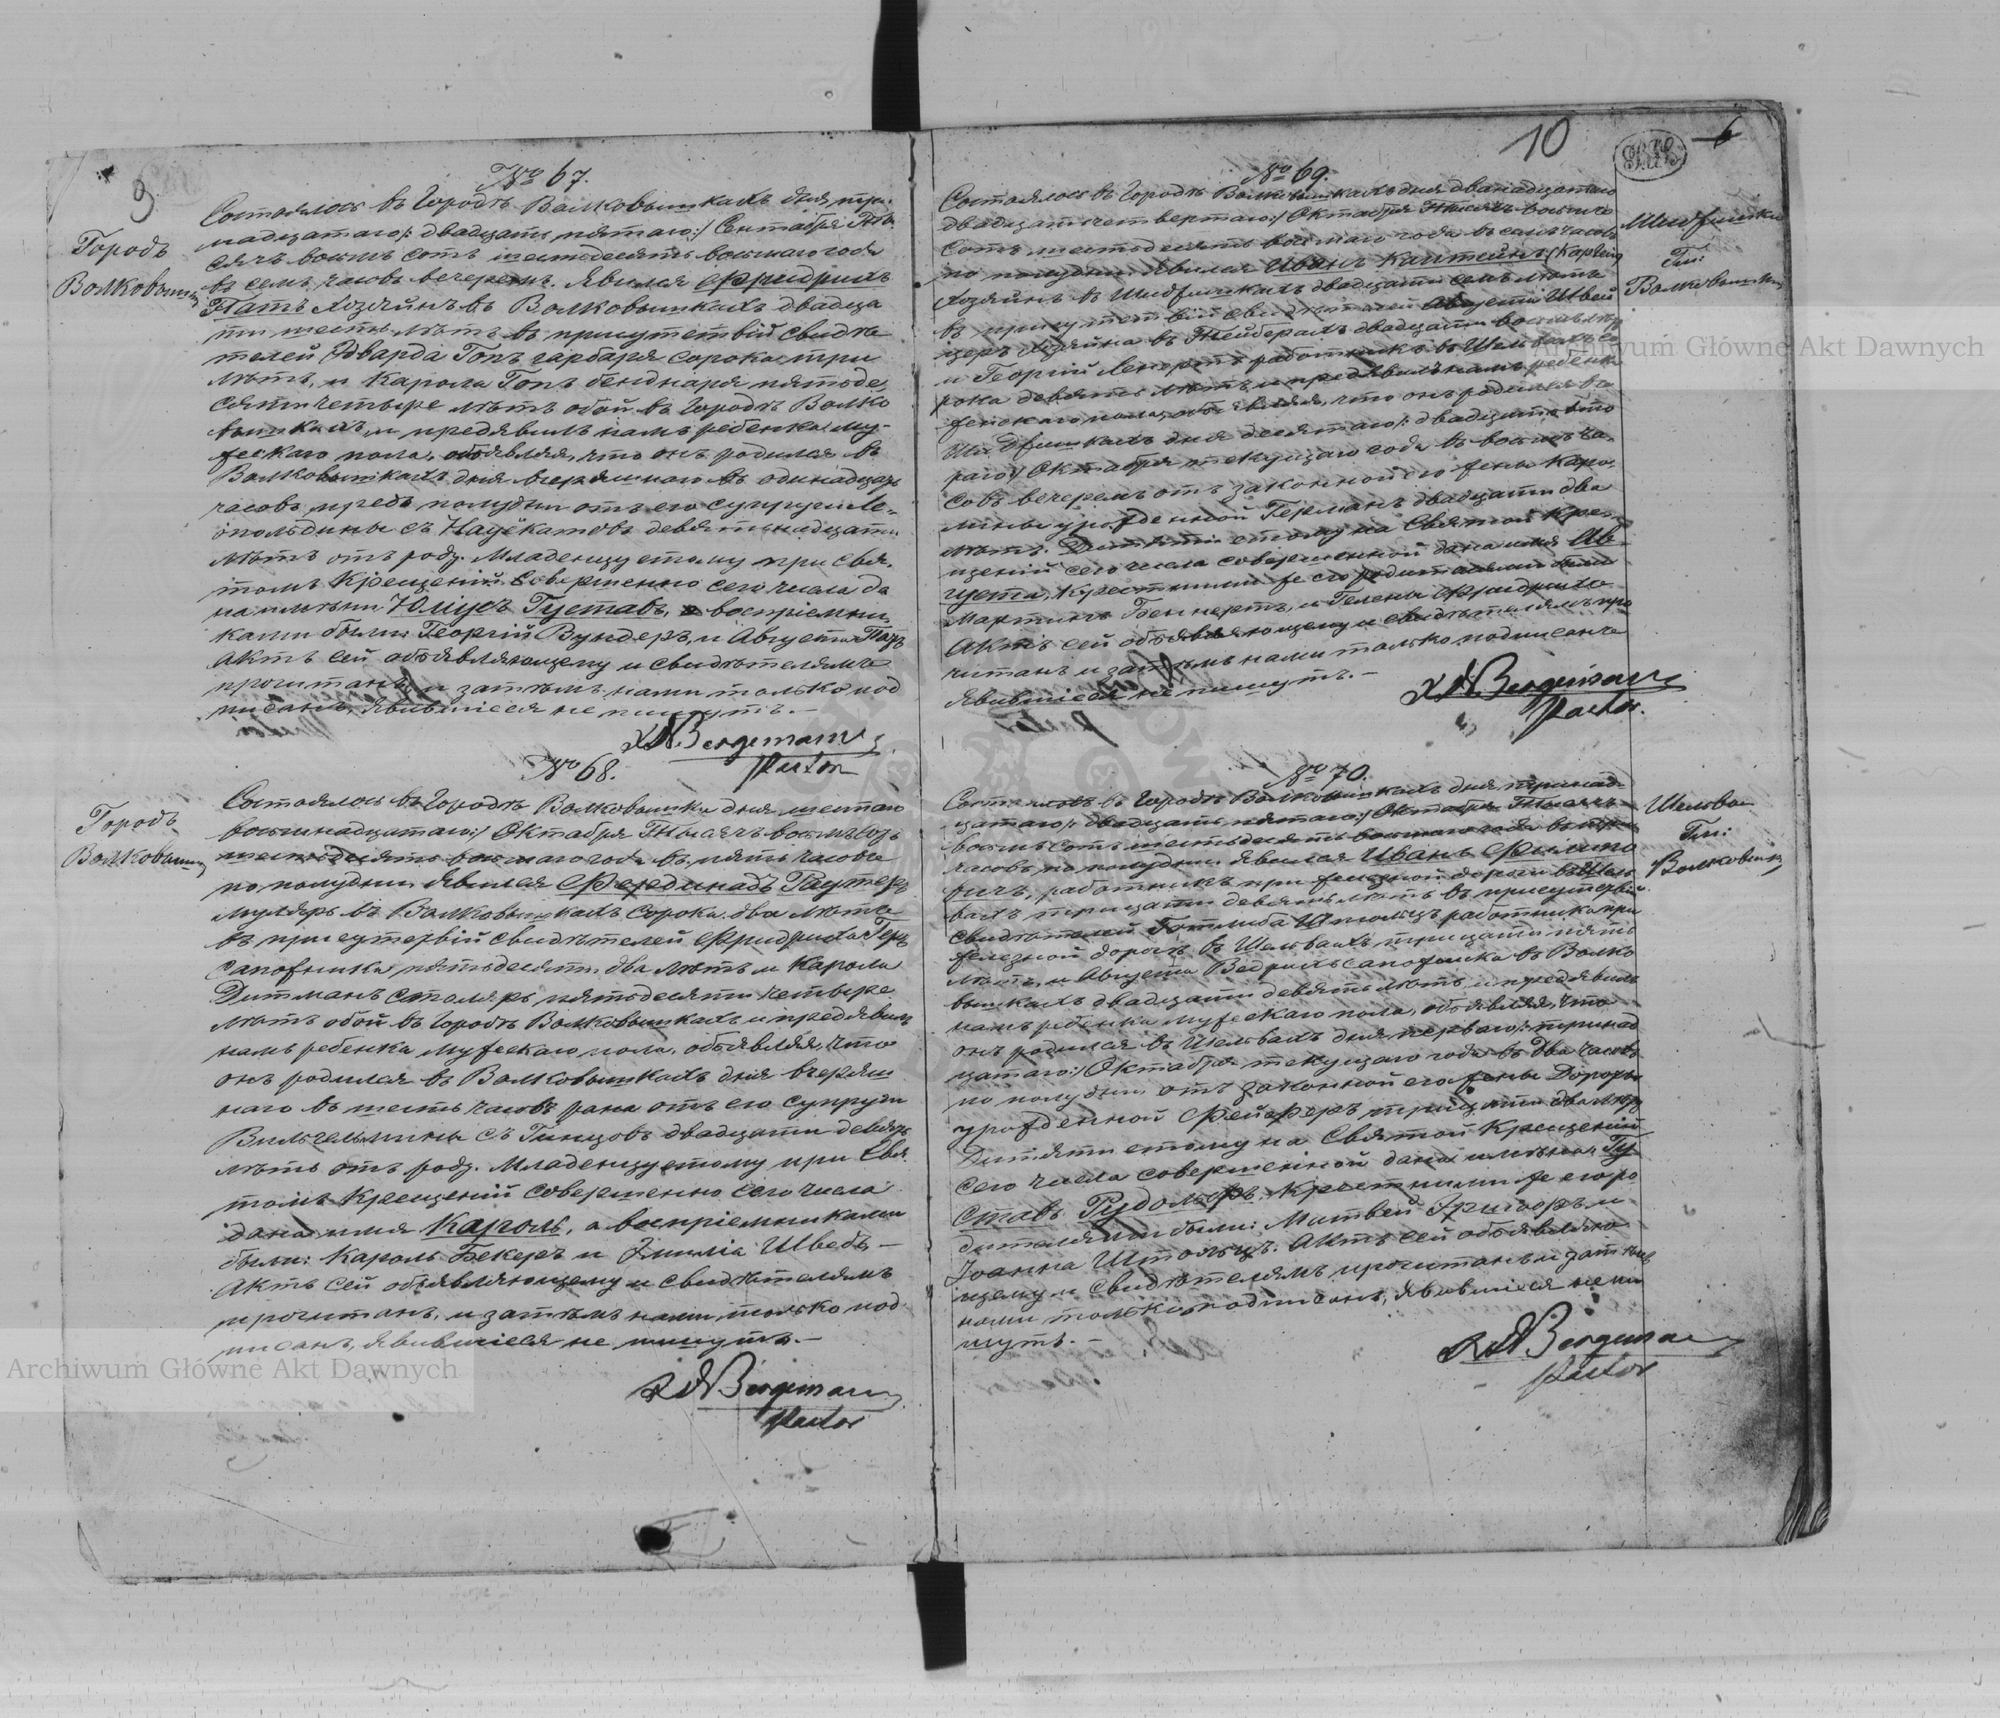 9
Городъ
Волковышки
№ 67.
Состоялось въ Городѣ Волковышкахъ дня три-
надцатаго /: двадцать пятаго :/ Сентября Ты-
сячъ восемь сотъ шестьдесятъ восьмаго года
въ семь часовъ вечеромъ. Явился Фридрихъ
Патъ хозяинъ въ Волковышкахъ двадца
ти шесть лѣтъ въ присутствій свидѣ
телей Эдварда Гопъ гарбаря сорока три
лѣтъ, и Кароля Гопъ бенднаря пятьде-
сяти четыре лѣтъ обой въ Городѣ Волко
вышкахъ, и предявилъ намъ ребенка му-
жескаго пола, объявляя, что онъ родился въ
Волковышкахъ дня вчерашнаго въ одинадцать
часовъ предъ полудни отъ его супруги Ле-
опольдины съ девятьнадцати
лѣтъ отъ роду. Младенцу етому при Свя-
томъ Крещеній совершенно сего числа да
на имѣни Юліусъ Густавъ, а воспріемни-
ками были: Георгій Вундеръ, и Августа Патъ
Актъ сей объявляющему и свидѣтелямъ
прочитанъ, и затѣмъ нами только под
писанъ, явившіеся не пишутъ.—
Bergemann
Pastor
Городъ
Волковышки
№ 68.
Состоялось въ Городѣ Волковышки дня шестаго
восьмнадцатаго :/ Октября Тысячъ восемьсотъ
шестьдесятъ восьмаго года въ пять часовъ
по полудни явился Фердинадъ Раутеръ
муляръ въ Волковышкахъ сорока два лѣтъ
въ присутствій свидѣтелей Фридриха
сапожника пятьдесяти два лѣтъ и Кароля
Дитманъ столяръ пятьдесяти четыре
лѣтъ обой въ Городѣ Волковышкахъ и предявилъ
намъ ребенка мужескаго пола, объявляя, что
онъ родился въ Волковышкахъ дня вчераш
наго въ шесть часовъ рана отъ его супруги
Вильгельмины съ двадцати девять
лѣтъ отъ роду. Младенцу етому при Свя-
томъ Крещеній совершенно сего числа
дана имя Кароль, а воспріемниками
были: Кароль Бекеръ и Эмилія Шведъ —
Актъ сей объявляющему и свидѣтелямъ
прочитанъ, и затѣмъ нами, только под-
писанъ, явившіеся не пишутъ.—
Bergemann
Pastor
10
6
№ 69.
Состоялось въ Городѣ Волковышкахъ дня дванадцатаго
двадцать четвертаго :/ Октября Тысячъ восемь
сотъ шестьдесятъ восьмаго года въ семь часовъ
по полудни явился Иванъ Капштейнъ
хозяинъ въ двадцати семь лѣтъ
въ присутствій свидѣтелей Августа Швей
церъ хозяина въ двадцати восемь лѣтъ
и Георгій работникъ въ со-
рока девять лѣтъ и предявилъ намъ ребенка
женскаго пола, объявляя, что онъ родился въ
дня десятаго /: двадцать вто
раго :/ Октября текущаго года въ восемь ча-
совъ вечеромъ отъ законной его жены Каро-
лины урожденной Германъ двадцати два
лѣтъ. Дитяти етому на Святой Кре-
щеній сего числа совершенной дана имя Ав-
густа, Крестними же его родителями были
Мартинъ и Гелена Фридрихъ
Актъ сей объявляющему и свидѣтелямъ про
читанъ и затѣмъ нами только подписанъ
явившіеся не пишутъ.—
Bergemann
Pastor.
Гм:
Волковышки
№ 70.
Состоялось въ Городѣ Волковышкахъ дня тринад-
цатаго /: двадцать пятаго :/ Октября Тысячъ
восемь сотъ шестьдесятъ восьмаго года въ три
часовъ по полудни явился Иванъ Филипо
вичъ, работникъ при железной дороги въ Шель
вахъ тридцати девять лѣтъ въ присутствій
свидѣтелей Готлиба Штольцъ работника при
железной дороги въ Шельвахъ тридцати пять
лѣтъ, и Августа Ведрихъ сапожника въ Волко
вышкахъ двадцати девять лѣтъ и предявилъ
намъ ребенка мужескаго пола, объявляя, что
онъ родился въ Шельвахъ дня перваго /: тринад
цатаго :/ Октября текущаго года въ два часовъ
по полудни отъ законной его жены Дороты
урожденной Фейферъ тридцати два лѣтъ
Дитяти етому на Святой Крещеній
сего числа совершенной дана имѣни Гу-
ставъ Рудольфъ. Крестними же его ро
дителями были: Матвей Григоръ и
Іоанна Штольцъ. Актъ сей объявляю
щему и свидѣтелямъ прочитанъ и затѣмъ
нами только подписанъ, явившіеся не пи
шутъ.—
Bergemann
Pastor
Шельвы
Гм:
Волковышки
Archiwum Główne Akt Dawnych
Archiwum Główne Akt Dawnych